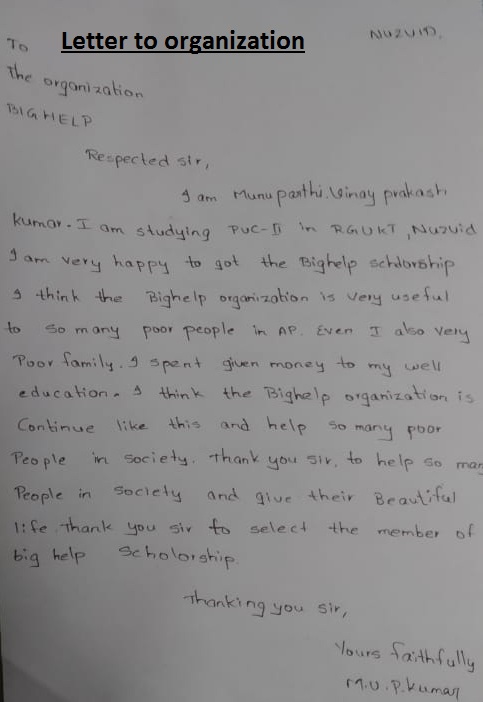 Letter to organization
NUZVID,
To
The organization
BIG HELP
Respected sir,
I am Munuparthi. Vinay prakash
kumar. I am studying PUC-II in RGUKT, Nuzvid
I am very happy to got the Bighelp scholorship
I think the Bighelp organization is very useful
to so many poor people in AP. Even I also very
Poor family. I spent given money to my well
education. I think the Bighelp organization is
Continue like this and help so many poor
People in society. Thank you sir, to help so many
People in society and give their Beautiful
life. Thank you sir to select the member of
big help Scholorship.
Thanking you sir,
Yours faithfully
M.V.P.Kumar